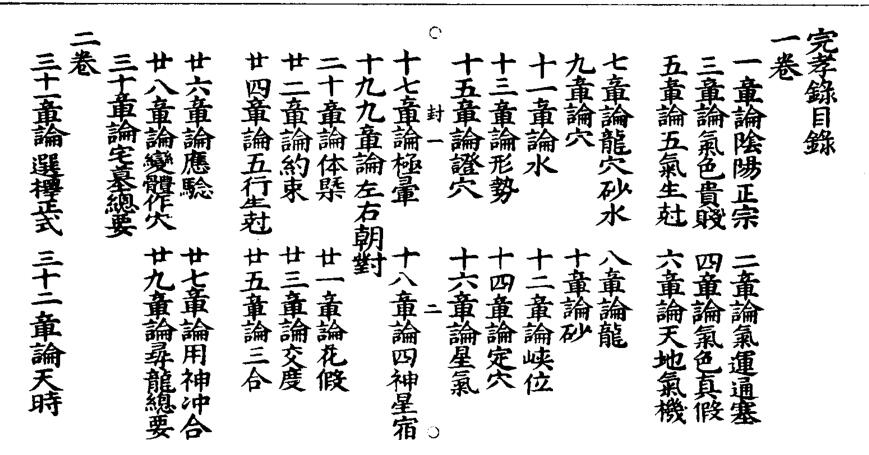 完孝錄目錄
一卷
一章論陰陽正宗　二章論氣運通塞
三章論氣色貴賤　四章論氣色真假
五章論五氣生尅　六章論天地氣機
七章論龍穴砂水　八章論龍
九章論穴　十章論砂
十一章論水　十二章論峽位
十三章論形勢　十四章論定穴
十五章論證穴　十六章論星氣
封一　二
十七章論極暈　十八章論四神星宿
十九九章論左右朝對
二十章論体棸　廿一章論花假
廿二章論約束　廿三章論交度
廿四章論五行生尅　廿五章論三合
廿六章論應驗　廿七章論用神冲合
廿八章論變體作穴　廿九章論尋龍總要
三十章論宅墓總要
二卷
三十一章論選擇正式　三十二章論天時